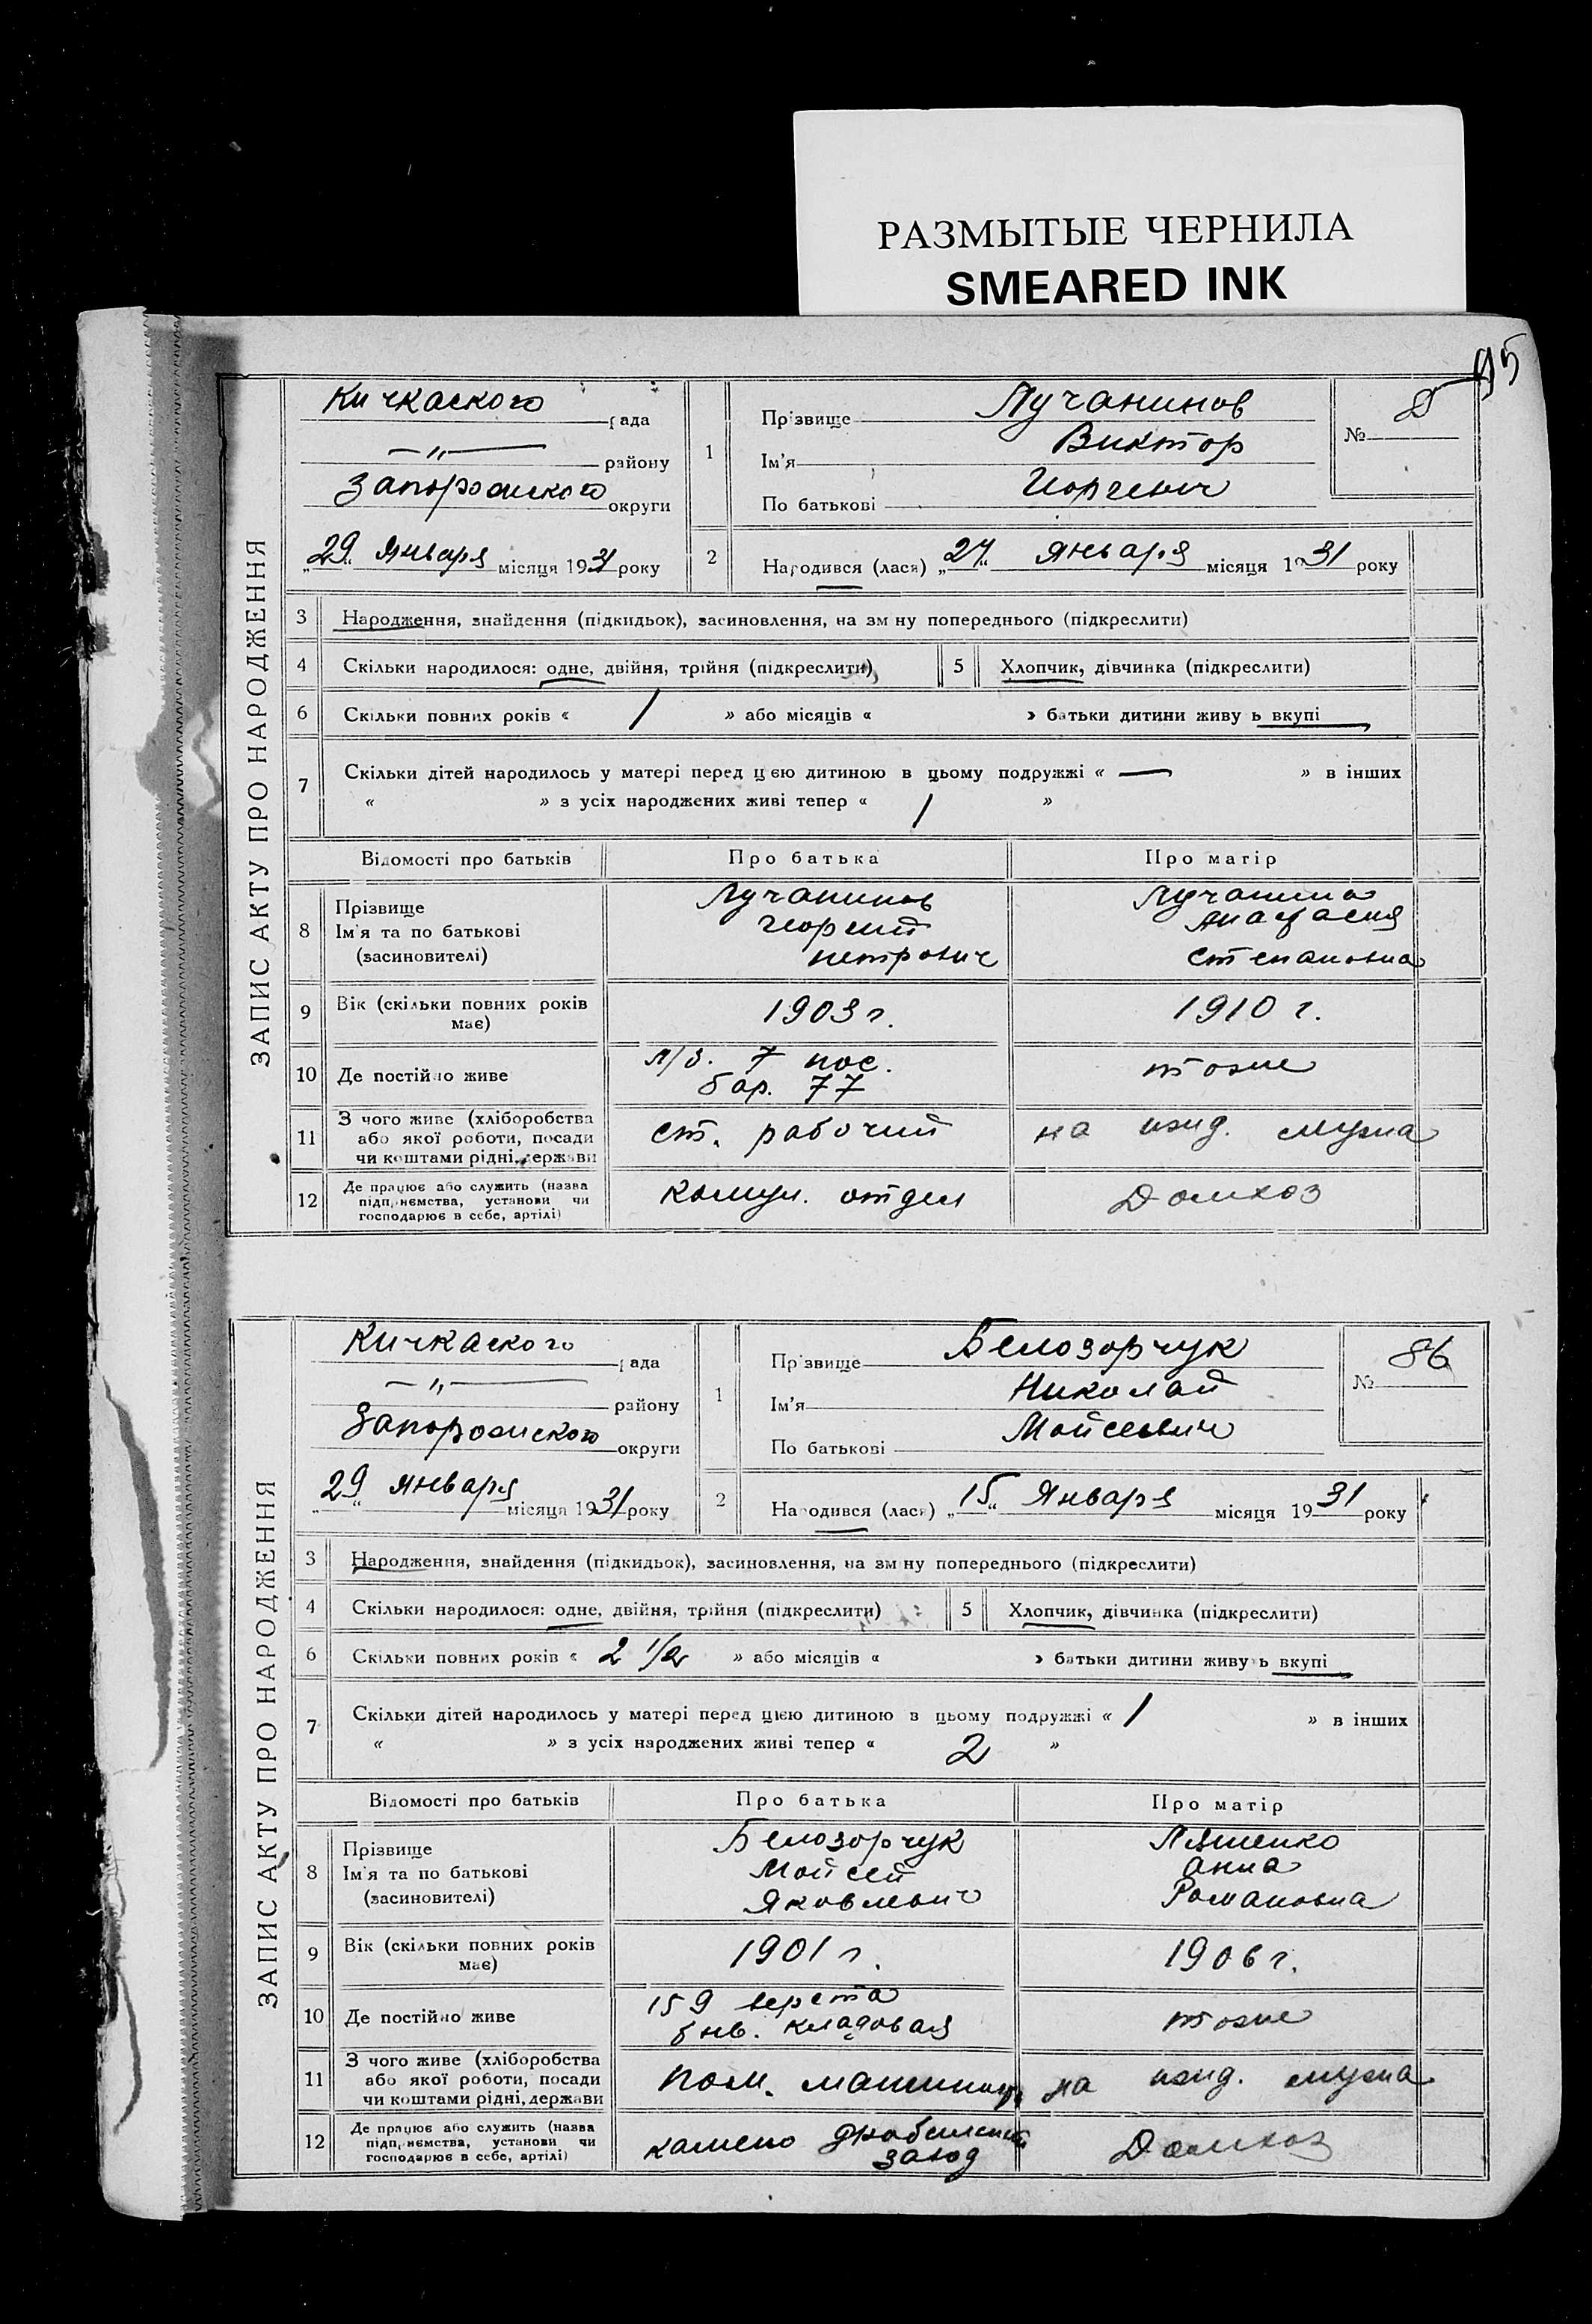 РАЗМЫТЫЕ ЧЕРНИЛА
SMEARED INK
ЗАПИС АКТУ ПРО НАРОДЖЕННЯ
Кичкаского рада
—„— району
Запорожского округи
„29“ Января місяця 1931 року
1
Прізвище Лучанинов
Ім'я Виктор
По батькові
№
2
Народився (лася) „27“ Января місяця 1931 року
3 Народження, знайдення (підкидьок), засиновлення, на зміну попереднього (підкреслити)
4 Скільки народилося: одне, двійня, трійня (підкреслити) 5 Хлопчик, дівчинка (підкреслити)
6 Скільки повних років « 1 » або місяців « » батьки дитини живуть вкупі
7 Скільки дітей народилось у матері перед цією дитиною в цьому подружжі « — » в інших
« » з усіх народжених живі тепер « 1 »
Відомості про батьків Про батька Про матір
8
Прізвище
Ім'я та по батькові
(засиновителі)
Лучанинов
Георгий
Петрович
Анастасия
Степановна
9 Вік (скільки повних років
має)
1903 г. 1910 г.
10 Де постійно живе
7 пос.
бар. 77
тоже
11
З чого живе (хліборобства
або якої роботи, посади
чи коштами рідні, держави
ст. рабочий на ижд. мужа
12
Де працює або служить (назва
підприємства, установи чи
господарює в себе, артілі)
Комун. отдел Домхоз
ЗАПИС АКТУ ПРО НАРОДЖЕННЯ
Кичкаского рада
—„— району
Запорожского округи
„29“ Января місяця 1931 року
1
Прізвище Белозорчук
Ім'я Николай
По батькові Мойсеевич
№ 86
2
Народився (лася) „15“ Января місяця 1931 року
3 Народження, знайдення (підкидьок), засиновлення, на зміну попереднього (підкреслити)
4 Скільки народилося: одне, двійня, трійня (підкреслити) 5 Хлопчик, дівчинка (підкреслити)
6 Скільки повних років « 2 1/2 » або місяців « » батьки дитини живуть вкупі
7 Скільки дітей народилось у матері перед цією дитиною в цьому подружжі « 1 » в інших
« » з усіх народжених живі тепер « 2 »
Відомості про батьків Про батька Про матір
8
Прізвище
Ім'я та по батькові
(засиновителі)
Белозорчук
Мойсей
Яковлевич
Ляшенко
Анна
Романовна
9 Вік (скільки повних років
має)
1901 г. 1906 г.
10 Де постійно живе
159 верста
кладовая
тоже
11
З чого живе (хліборобства
або якої роботи, посади
чи коштами рідні, держави
пом. на ижд. мужа
12
Де працює або служить (назва
підприємства, установи чи
господарює в себе, артілі)
камено
завод
Домхоз